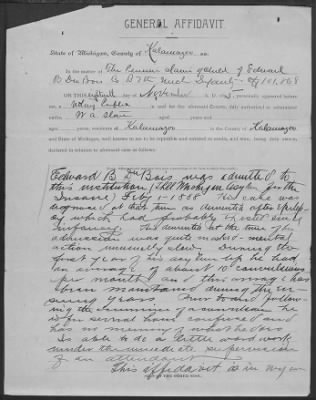 GENERAL AFFIDAVIT.
State of Michigan, County of Kalamazoo ss:
In the matter of The Pension claim of child of Edward
B Du Bois Co B 7th Mich
ON THIS day of November A. D. 5, personally appeared before
me a Notary Public in and for the aforesaid County, duly authorized to administer
oaths W. A. Stone
aged years, residence Kalamazoo in the County of Kalamazoo
and State of Michigan, well known to me to be reputable and entitled to credit, and who, being duly sworn,
Edward B Du Bois was admitted to
this institution (The Michigan Asylum for the
Insane) Feby 1-1888. His case was
diagnosed at that time as dementia after epilepsy
which had probably existed since
infancy. His dementia at the time of his
admission was quite marked - mental
action unusually slow. During the
first year of his asylum life he had
an average of about 10 convulsions
per month and this average has
been maintained during the
suing years. Prior to and follow-
ing the occurrence of a convulsion he
is for several hours confused and
has no memory of what he does
Is able to do a little ward work
under the immediate supervision
of an attendant.
This affidavit is in my own